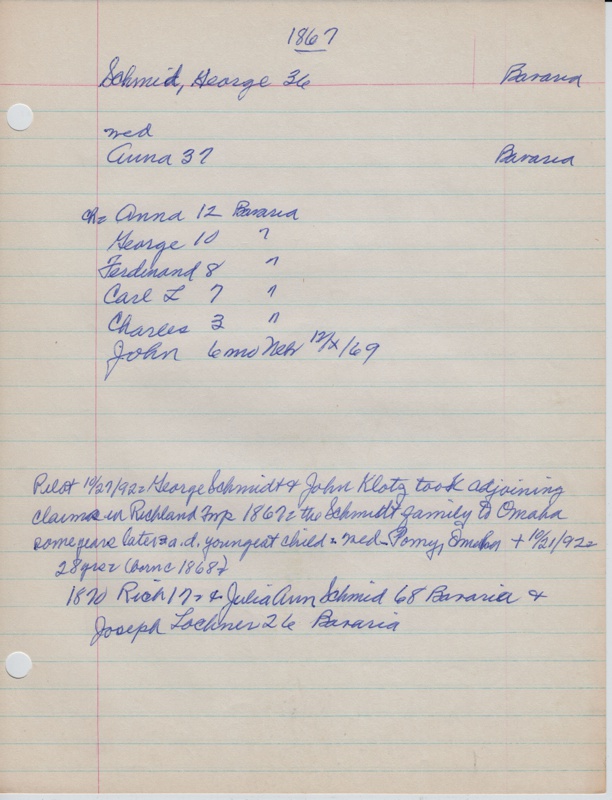 1867
Schmid, George 36 Bavaria
med
Anna 37 Bavaria
ch= Anna 12 Bavaria
George 10 "
Ferdinand 8 "
Carl L 7 "
Charles 3 "
John 6 mo Neb 12/x/69
Pilot 10/27/92= George Schmidt & John Klotz took adjoining
claims in Richland Twp 1867= the Schmidt family to Omaha
some years later= a.d. youngest child= med Omaha + 10/21/92=
28 yrs= (born c 1868?)
1870 Rich 17= & Julia Ann Schmid 68 Bavaria &
Joseph Lochner 26 Bavaria